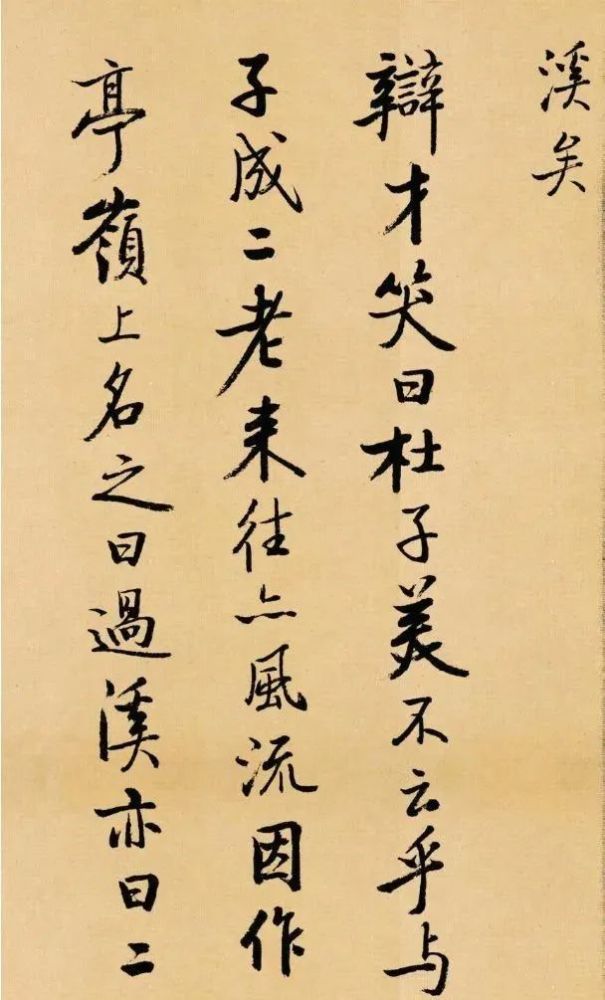 溪矣
辯才笑曰杜子美不云乎与
子成二老来往亦風流因作
亭嶺上名之曰過溪亦曰二